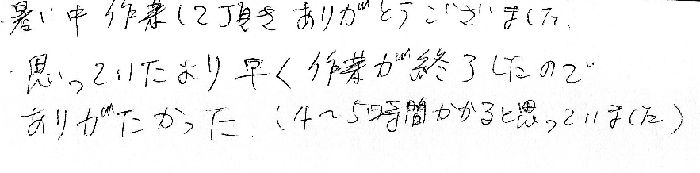 ・暑い中作業して頂きありがとうございました。
・思っていたより早く作業が終了したので
ありがたかった。(4〜5時間かかると思っていました)